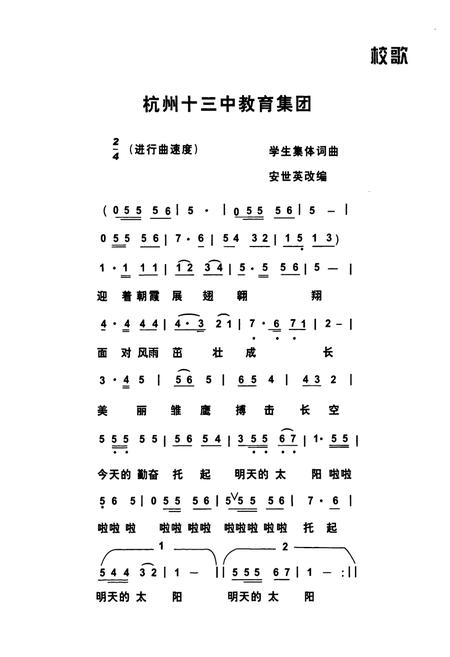 校歌
杭州十三中教育集团
2/4 (进行曲速度) 学生集体词曲
安世英改编
(0 55 56 | 5 · | 0 55 56 | 5 — |
0 55 56 | 7 · 6 | 54 32 | 1 5 1 3)
1 · 1 11 | 12 34 | 5 · 5 56 | 5 — |
迎 着 朝霞 展 翅 翱 翔
4 · 4 44 | 4 · 3 21 | 7 · 6 71 | 2 — |
面 对 风雨 茁 壮 成 长
3 · 4 5 | 56 5 | 65 4 | 43 2 |
美 丽 雏 鹰 搏 击 长 空
5 55 55 | 56 54 | 3 55 67 | 1 · 55 |
今天的 勤奋 托 起 明天的 太 阳 啦啦
56 5 | 0 55 56 | 5 55 56 | 7 · 6 |
啦啦 啦 啦啦 啦啦 啦啦啦 啦啦 托 起
1 2
544 32 | 1 — || 555 67 | 1 — :||
明天的 太 阳 明天的 太 阳